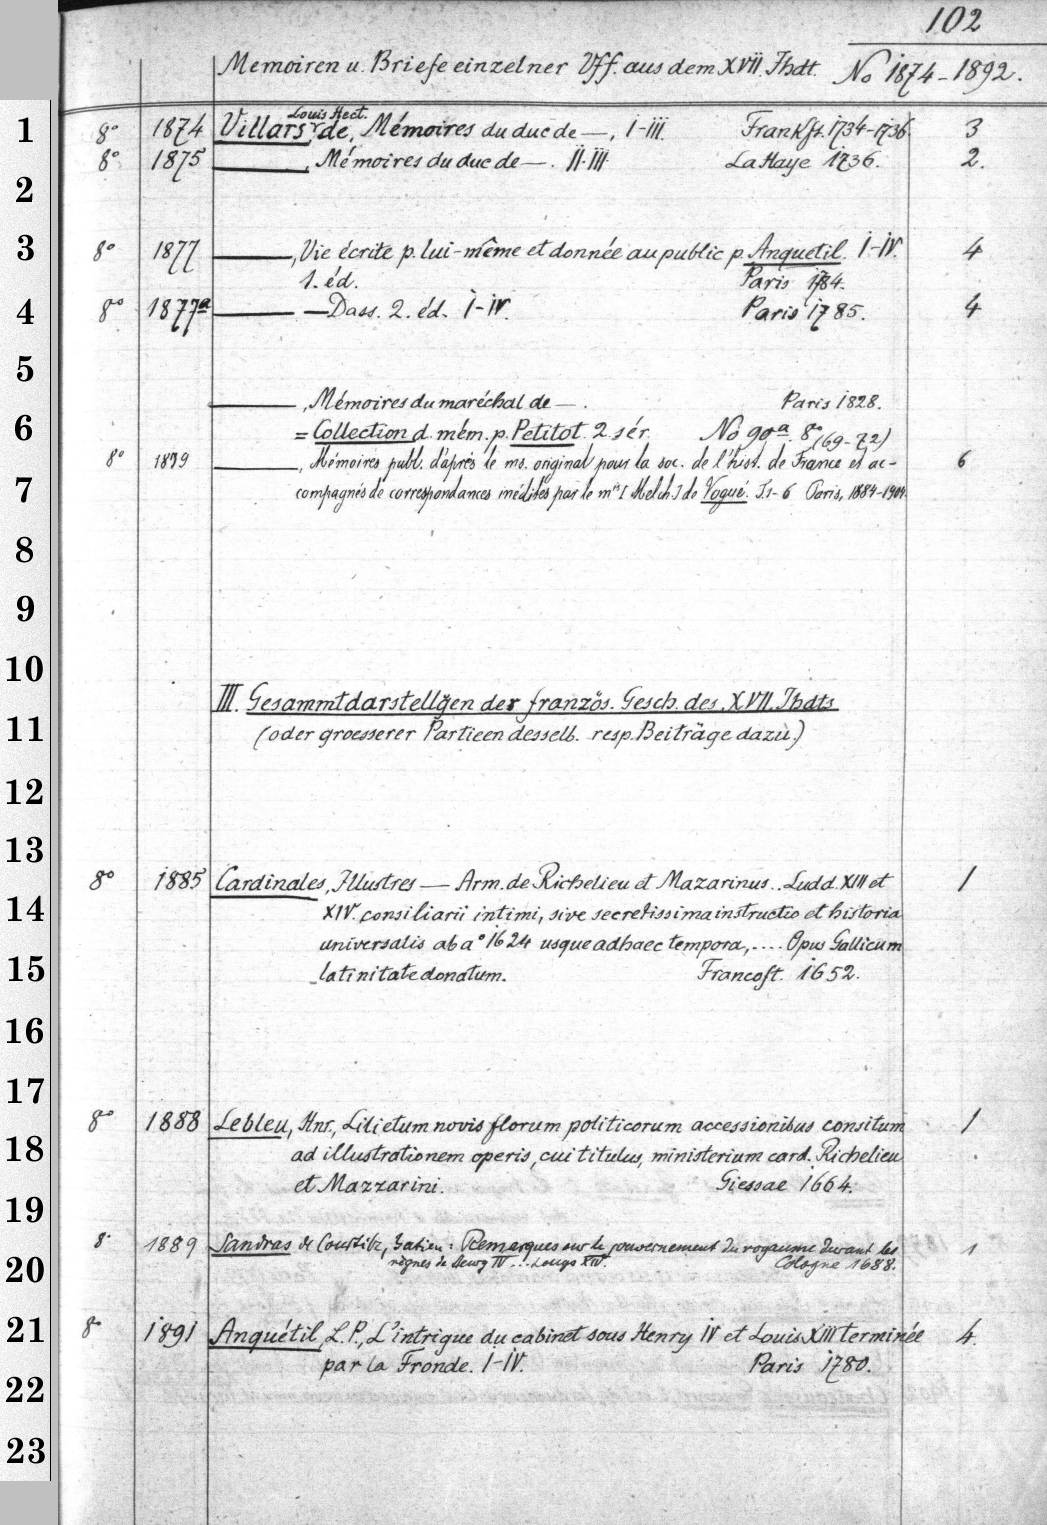 102
Memoiren u. Briefe einzelner Vff. aus dem XVII. Jhdt. No 1874-1892.
1 8° 1874 Villars, Louis Hect. de, Mémoires du duc de —, I-III. Frankft. 1734-1736. 3
8° 1875 ———, Mémoires du duc de —. II-III. La Haye 1736. 2.
2
3 8° 1877 ———, Vie écrite p. lui-même et donnée au public p. Anquetil. I-IV. 4
1. éd. Paris 1784.
4 8° 1877a ——— — Dass. 2. éd. I-IV. Paris 1785. 4
5
———, Mémoires du maréchal de —. Paris 1828.
6 = Collection d. mém. p. Petitot. 2. sér. No 90a. 8° (69-72)
8° 1879 ———, Mémoires publ. d'après le ms. original pour la soc. de l'hist. de France et ac- 6
7 compagnés de correspondances inédites par le mis [Melch.] de Vogué. T. 1-6 Paris, 1884-1904.
8
9
10
III. Gesammtdarstellgen der französ. Gesch. des XVII. Jhdts
11 (oder groesserer Partieen desselb. resp. Beiträge dazu.)
12
13
8° 1885 Cardinales, Illustres — Arm. de Richelieu et Mazarinus.. Ludd. XIII et 1
14 XIV. consiliarii intimi, sive secretissima instructio et historia
universalis ab a° 1624 usque ad haec tempora, .... Opus Gallicum
15 latinitate donatum. Francoft. 1652.
16
17
8° 1888 Lebleu, Hnr., Lilietum novis florum politicorum accessionibus consitum 1
18 ad illustrationem operis, cui titulus, ministerium card. Richelieu
et Mazzarini. Giessae 1664.
19
8° 1889 Sandras de Courtilz, Gatien: Remarques sur le gouvernement du royaume durant les 1
20 règnes de Henry IV... Louys XIV. Cologne 1688.
21 8° 1891 Anquétil, L. P., L'intrigue du cabinet sous Henry IV et Louis XIII terminée 4.
par la Fronde. I-IV. Paris 1780.
22
23